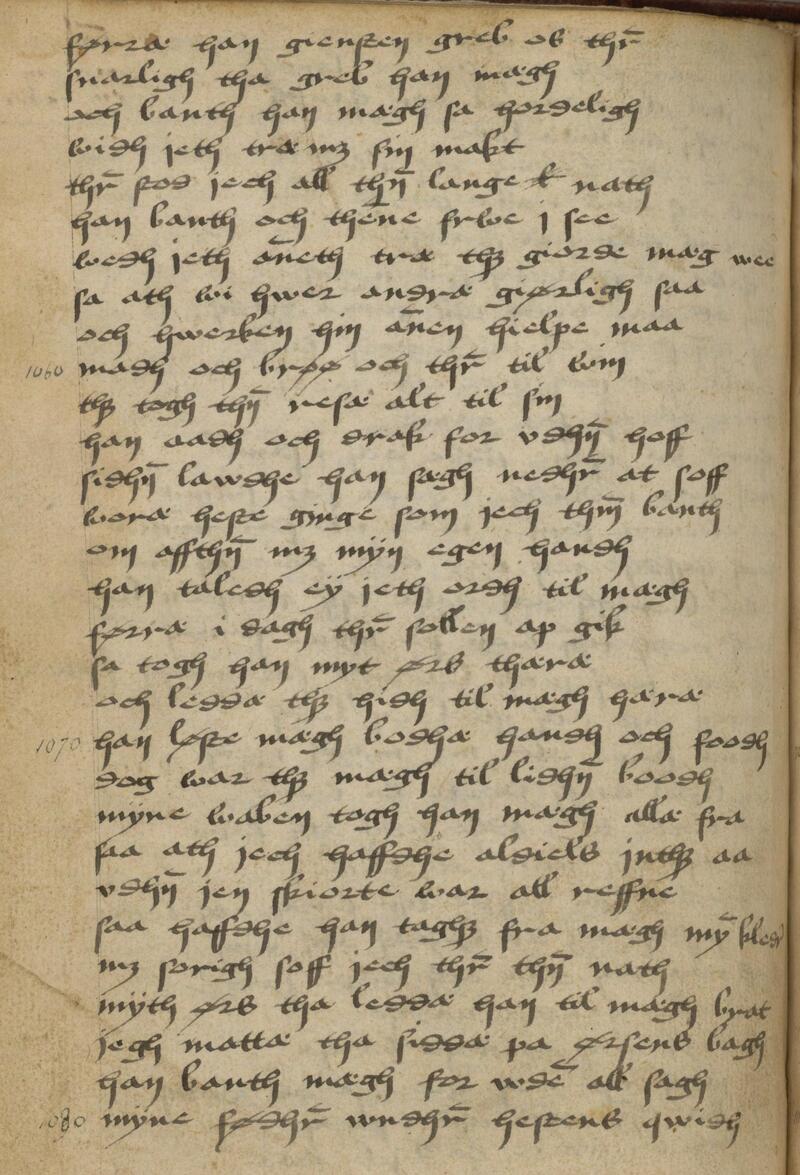 førræ han giensten greb os thr̄
snarligh tha greb han mægh
och banth han mægh sa hordeligh
widh jeth træ mz sin makt
thr̄ stod jech all thn̄ lange nath
han banth och thēne frwe j see
wedh jeth an̄eth træ thz giorde mæg wee
sa ath wi hwer andræ giørligh saa
och hwerken hin an̄en hielpe maa
1060 madh och brøø och thr̄ til win
thz togh thn̄ resæ alt til sin
han aadh och drak for vdhn̄ hoff
sidhn̄ lawdhe han sægh nedhr̄ at soff
woræ heste ginge som jech thm̄ banth
om affthn̄ mz mÿn egen handh
han taledh eÿ jeth ordh til mægh
førræ i dagh thr̄ sollen ap gik
sa togh han myt ørs thæræ
och leddæ thz hidh til mægh hæræ
1070 han løste mægh bodhæ handh och foodh
dog war thz mægh til lidhn̄ boodh
mÿne waben togh han mægh allæ fra
saa ath jech haffdhe aldiels jnthz aa
vdhn̄ jen skiorte war all reffne
saa haffdhe han taghz fra mægh mȳ kledr̄
mz sorigh soff jech thr̄ thn̄ nath
mÿth ørs tha leddæ han til mægh brat
jegh mattæ tha siddæ pa ørsens bagh
han banth mægh for wdē all sagh
1080 mÿne fødhr̄ wndhr̄ hestens qwidh